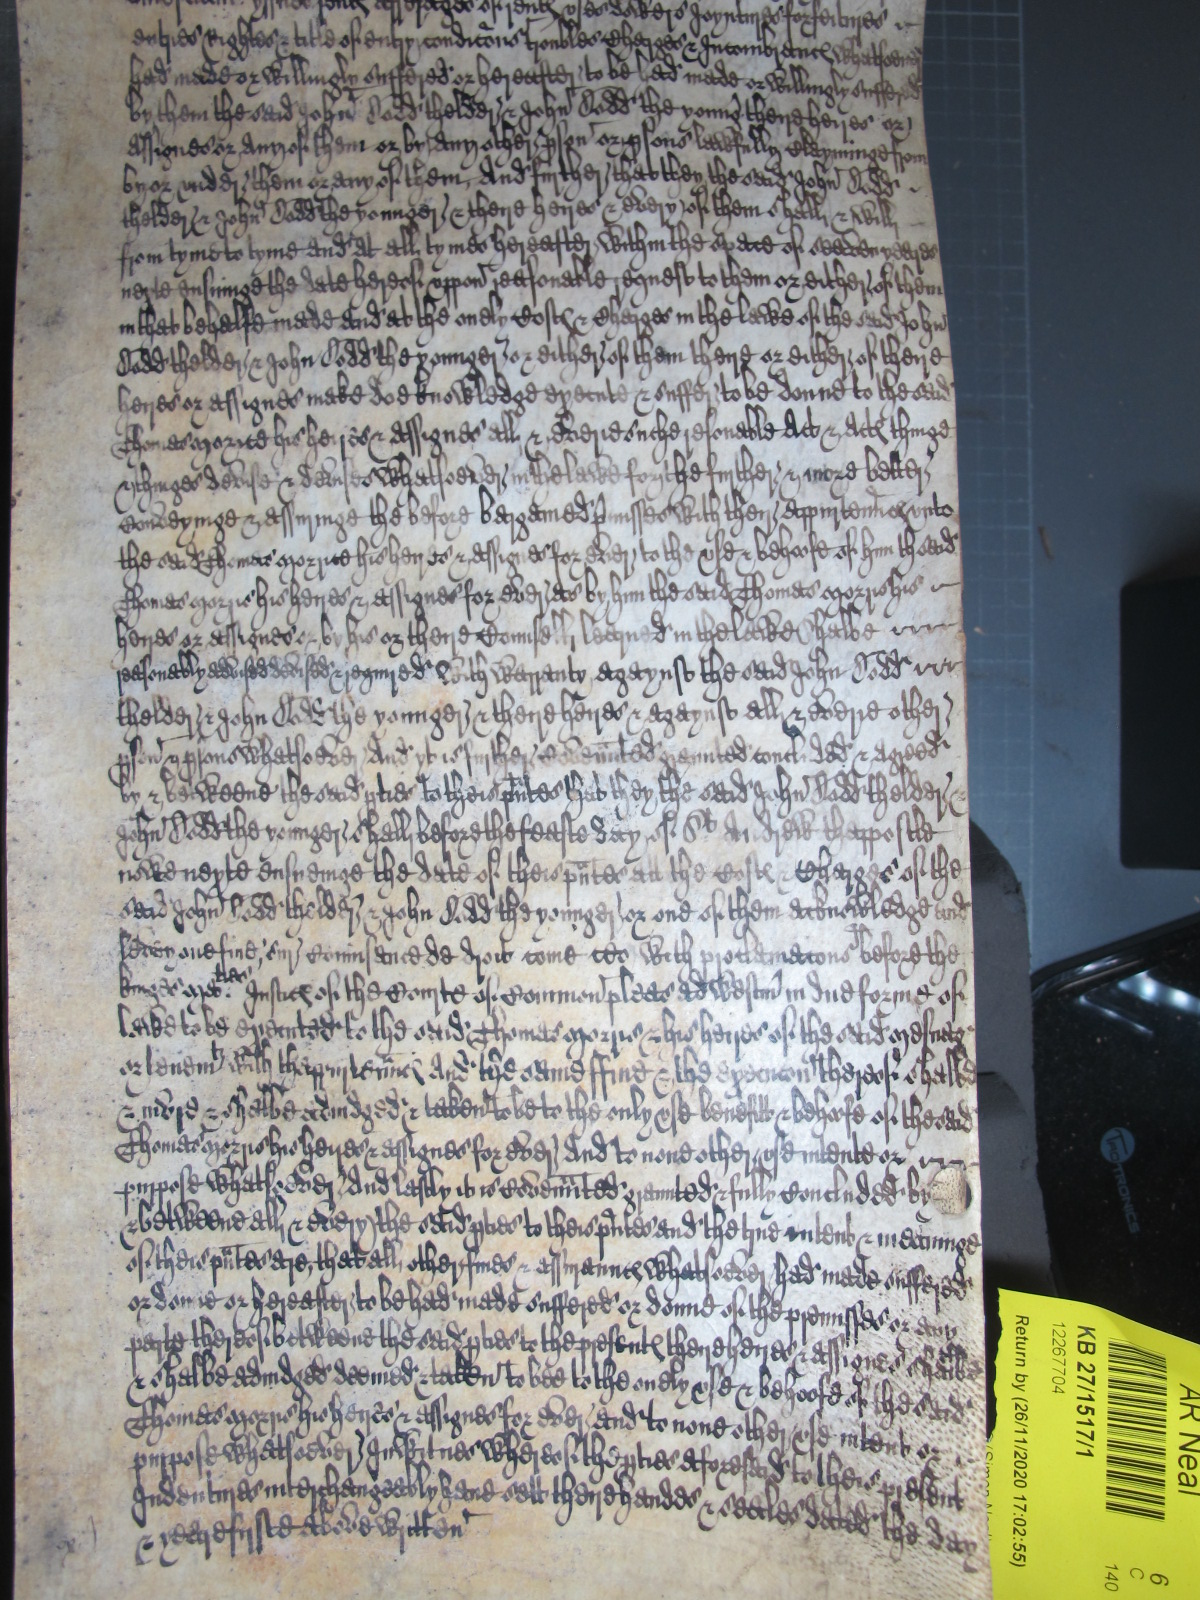 yssues rentes arrerages of rentes uses dowers Joyntures forfeitures
entries Rightes & title of entry condicons troubles Charges & Incombrances Whatsoever
had made or willingly suffered or hereafter to be had made or willingly suffered
by them the said John Codd thelder & John Codd the younger there heires or
assignes or any of them or by any other pson or psons lawfully Clayminge from
by or under them or any of them. And further that they the said John Codd
thelder & John Codd the younger & there heires & every of them shall & will
from tyme to tyme and at all tymes hereafter within the space of seaven yeares
nexte ensuinge the date hereof uppon reasonable request to them or either of them
in that behalfe made and at the onely Costes & Charges in the lawe of the said John
Codd thelder & John Codd the younger or either of them there or either of there
heires or assignes make doe knowledge execute & suffer to be donne to the said
Thomas Morrice his heires & assignes all & everie suche resonable Act & Actes thinge
& thinges devise & devises Whatsoever in the lawe for the further & more better
Conveyinge & assuringe the before bargained pmisses with ther appurtennces unto
the said Thomas Morrice his heires & assignes for ever to the use & behoofe of him the said
Thomas Morris his heires & assignes for ever, as by him the said Thomas Morris his
heires or assignes or by his or there Counsell learned in the lawe shalbe
reasonably advised devised & required With Warranty agaynst the said John Codd
thelder & John Codd the younger & there heires & agaynst all & everie other
pson & psons whatsoever And yt is further Covennted graunted concluded & agreed
by & betweene the said pties to theis pntes that they the said John Codd thelder &
John Codd the younger shall before the feaste day of St Andrew thappostle
nowe nexte ensueinge the date of theis pntes att the Costes & Charges of the
said John Codd thelder & John Codd the younger or one of them acknowledge and
levey one fine sur Connusance de droit come ceo With proclamacons before the
kinges Maties Justices of the Courte of Common pleas at Westm in due forme of
lawe to be executed to the said Thomas Morris & his heires of the said Mesuage
or tenemt with thappurtennces And the same ffine & the execucon thereof shalbe
& inure & shalbe adiudged & taken to be to the only use benefitt & behoofe of the said
Thomas Morris his heires & assignes for ever And to none other use intente or
purpose Whatsoever, And lastly it is Covennted graunted & fully Concluded by
& betweene all & every the said pties to theis pntes and the true intent & meaninge
of theis pntes are, that all other fines & assurannces Whatsoever had made suffered
or donne or hereafter to be had made suffered or donne of the premisses or any
parte thereof betweene the said pties to the presentes there heires & assignes shalbe
& shalbe adiudged deemed & taken to bee to the onely use & behoofe of the said
Thomas Morris his heires & assignes for ever, and to none other use intent or
purpose Whatsoever, In Witnes Whereof the pties aforesaid to theis present
Indentures interchangeably have sett there handes & seales dated the day
& yeare firste above written
AR Neal
KB 27/1517/1
12267704
Return by (26/11/2020 17:02:55)
6
C
140
TRONICS